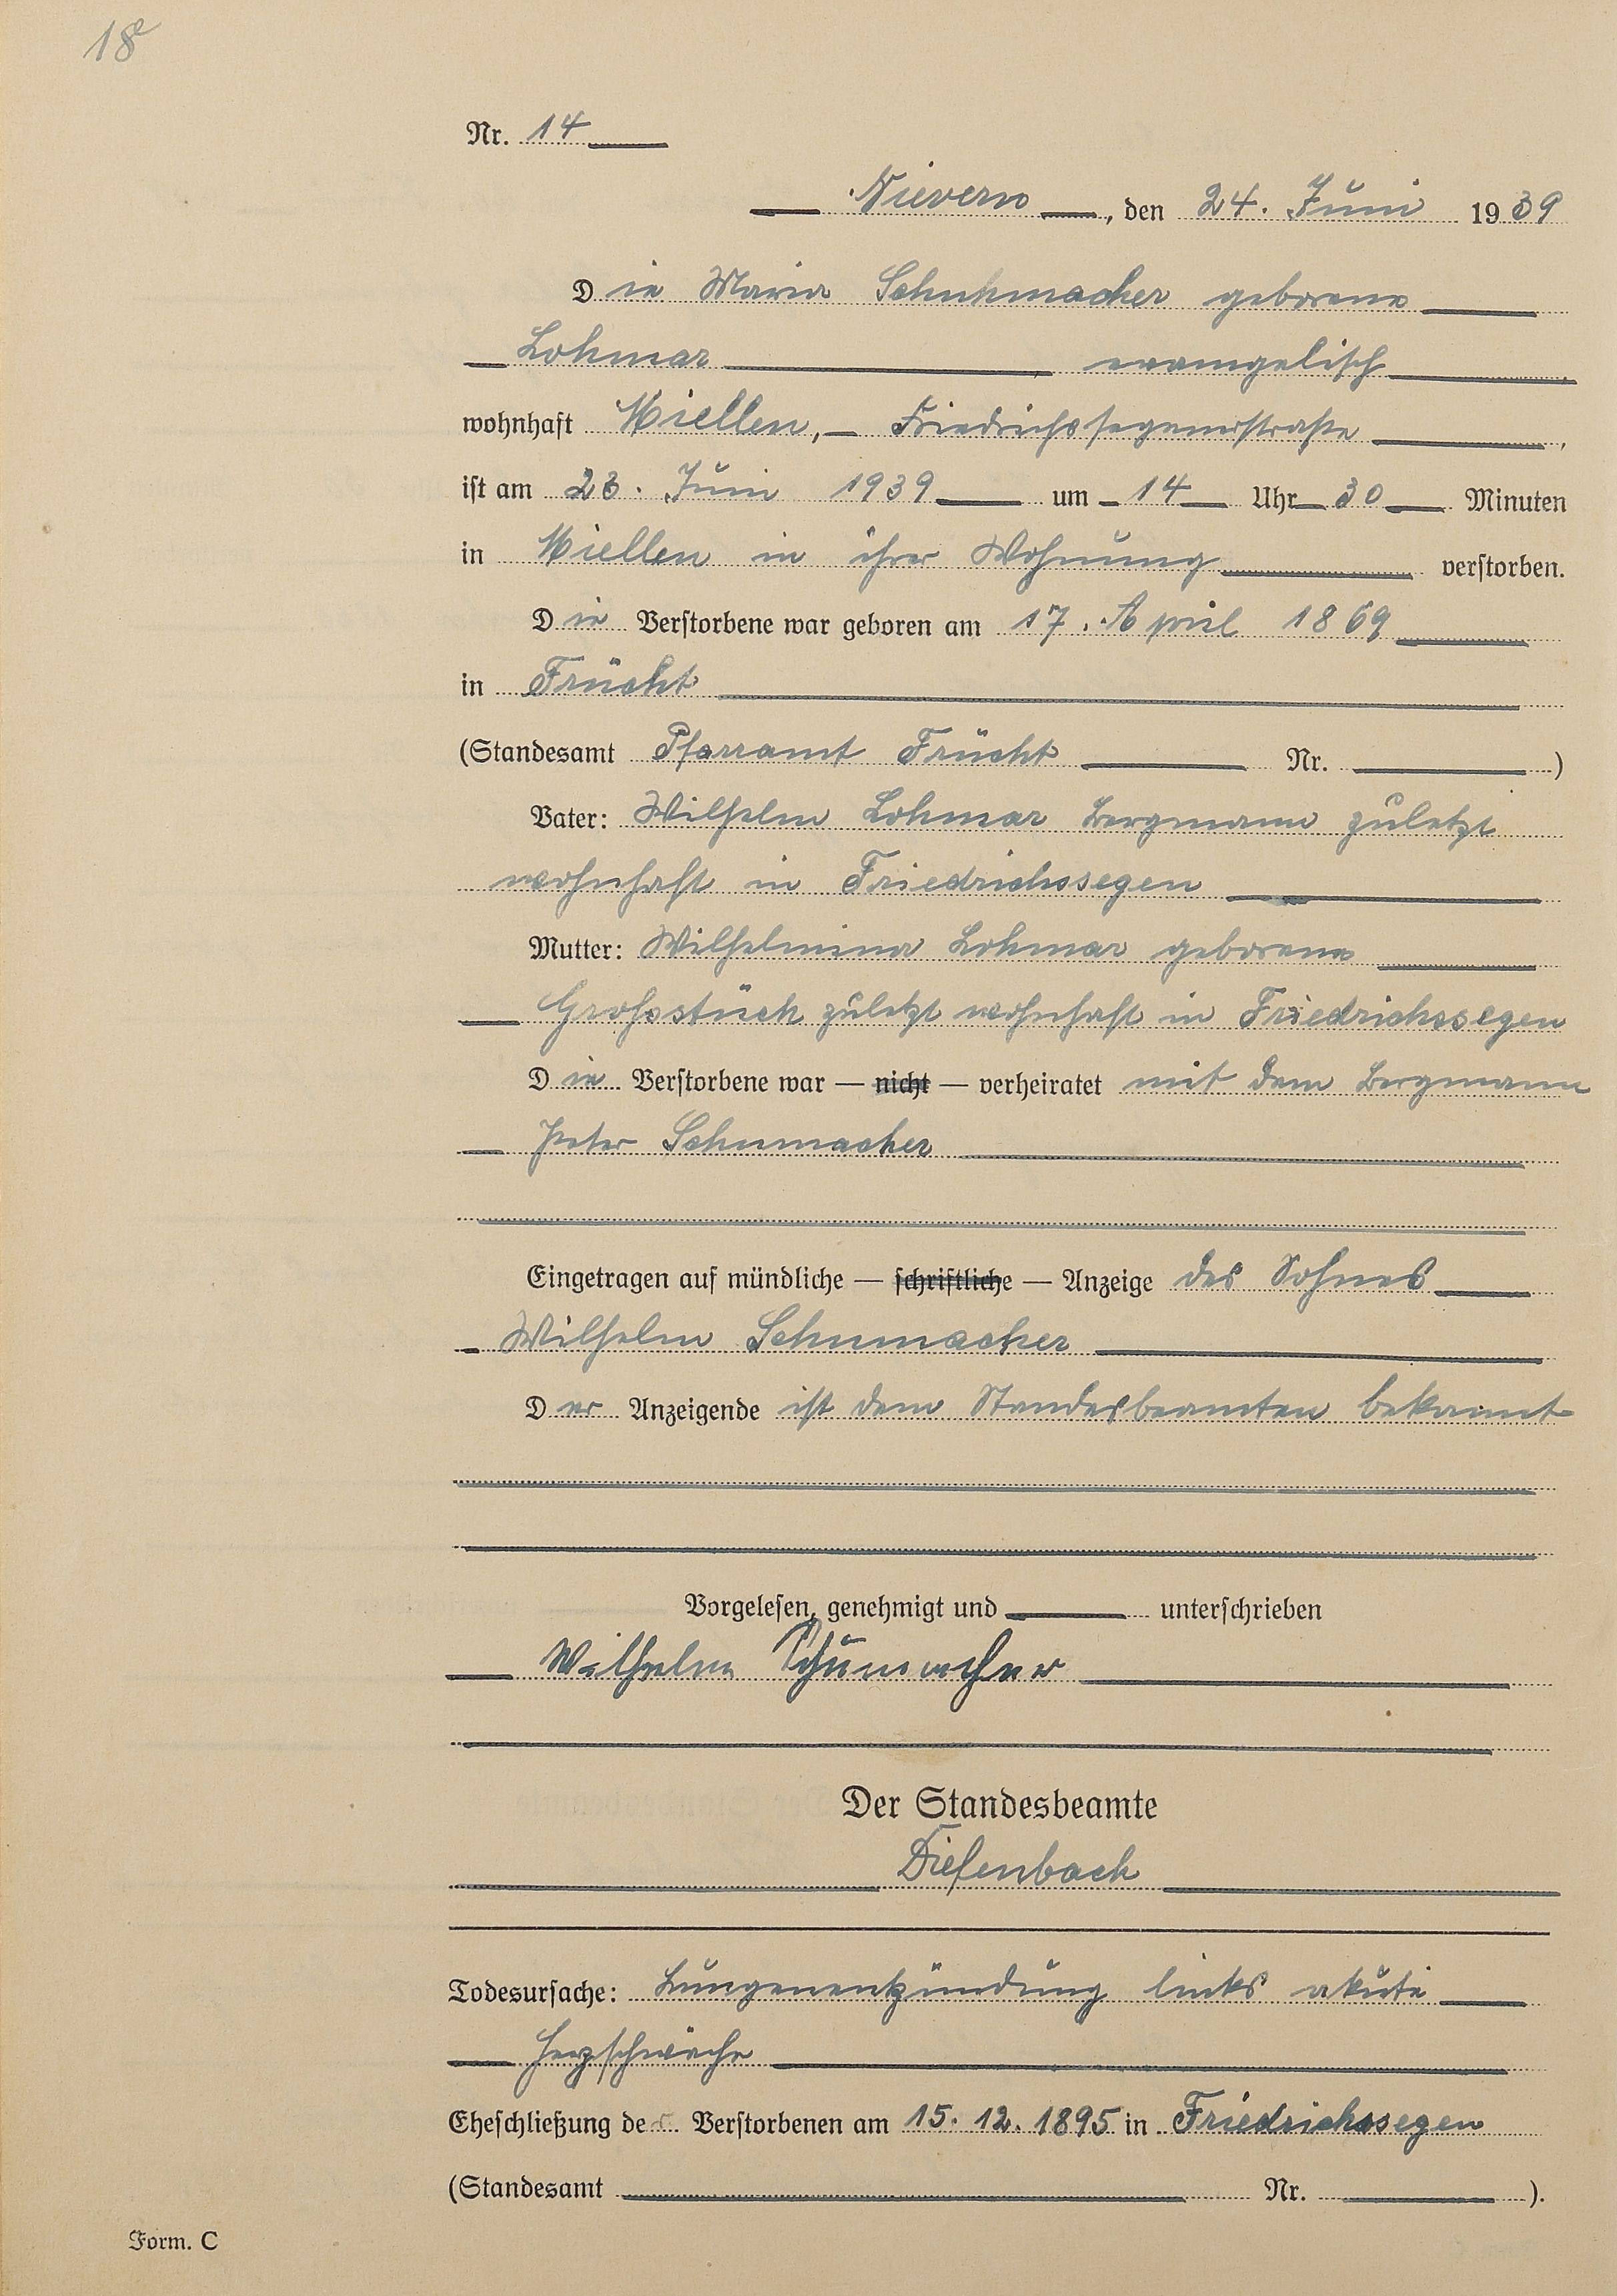 18
Nr. 14
Nievern, den 24. Juni 1939
Die Maria Schuhmacher geborene
Lohmar evangelisch
wohnhaft Miellen, Friedrichssegenerstraße,
ist am 23. Juni 1939 um 14 Uhr 30 Minuten
in Miellen in ihrer Wohnung verstorben.
Die Verstorbene war geboren am 17. April 1869
in Frücht
(Standesamt Pfarramt Frücht Nr. )
Vater: Wilhelm Lohmar Bergmann zuletzt
wohnhaft in Friedrichssegen
Mutter: Wilhelmina Lohmar geborene
Grossstück zuletzt wohnhaft in Friedrichssegen
Die Verstorbene war — nicht — verheiratet mit dem Bergmann
Peter Schumacher
Eingetragen auf mündliche — schriftliche — Anzeige des Sohnes
Wilhelm Schumacher
Der Anzeigende ist dem Standesbeamten bekannt
Vorgelesen, genehmigt und unterschrieben
Wilhelm Schumacher
Der Standesbeamte
Diefenbach
Todesursache: Lungenentzündung links akute
Herzschwäche
Eheschließung der Verstorbenen am 15. 12. 1895 in Friedrichssegen
(Standesamt Nr. ).
Form. C